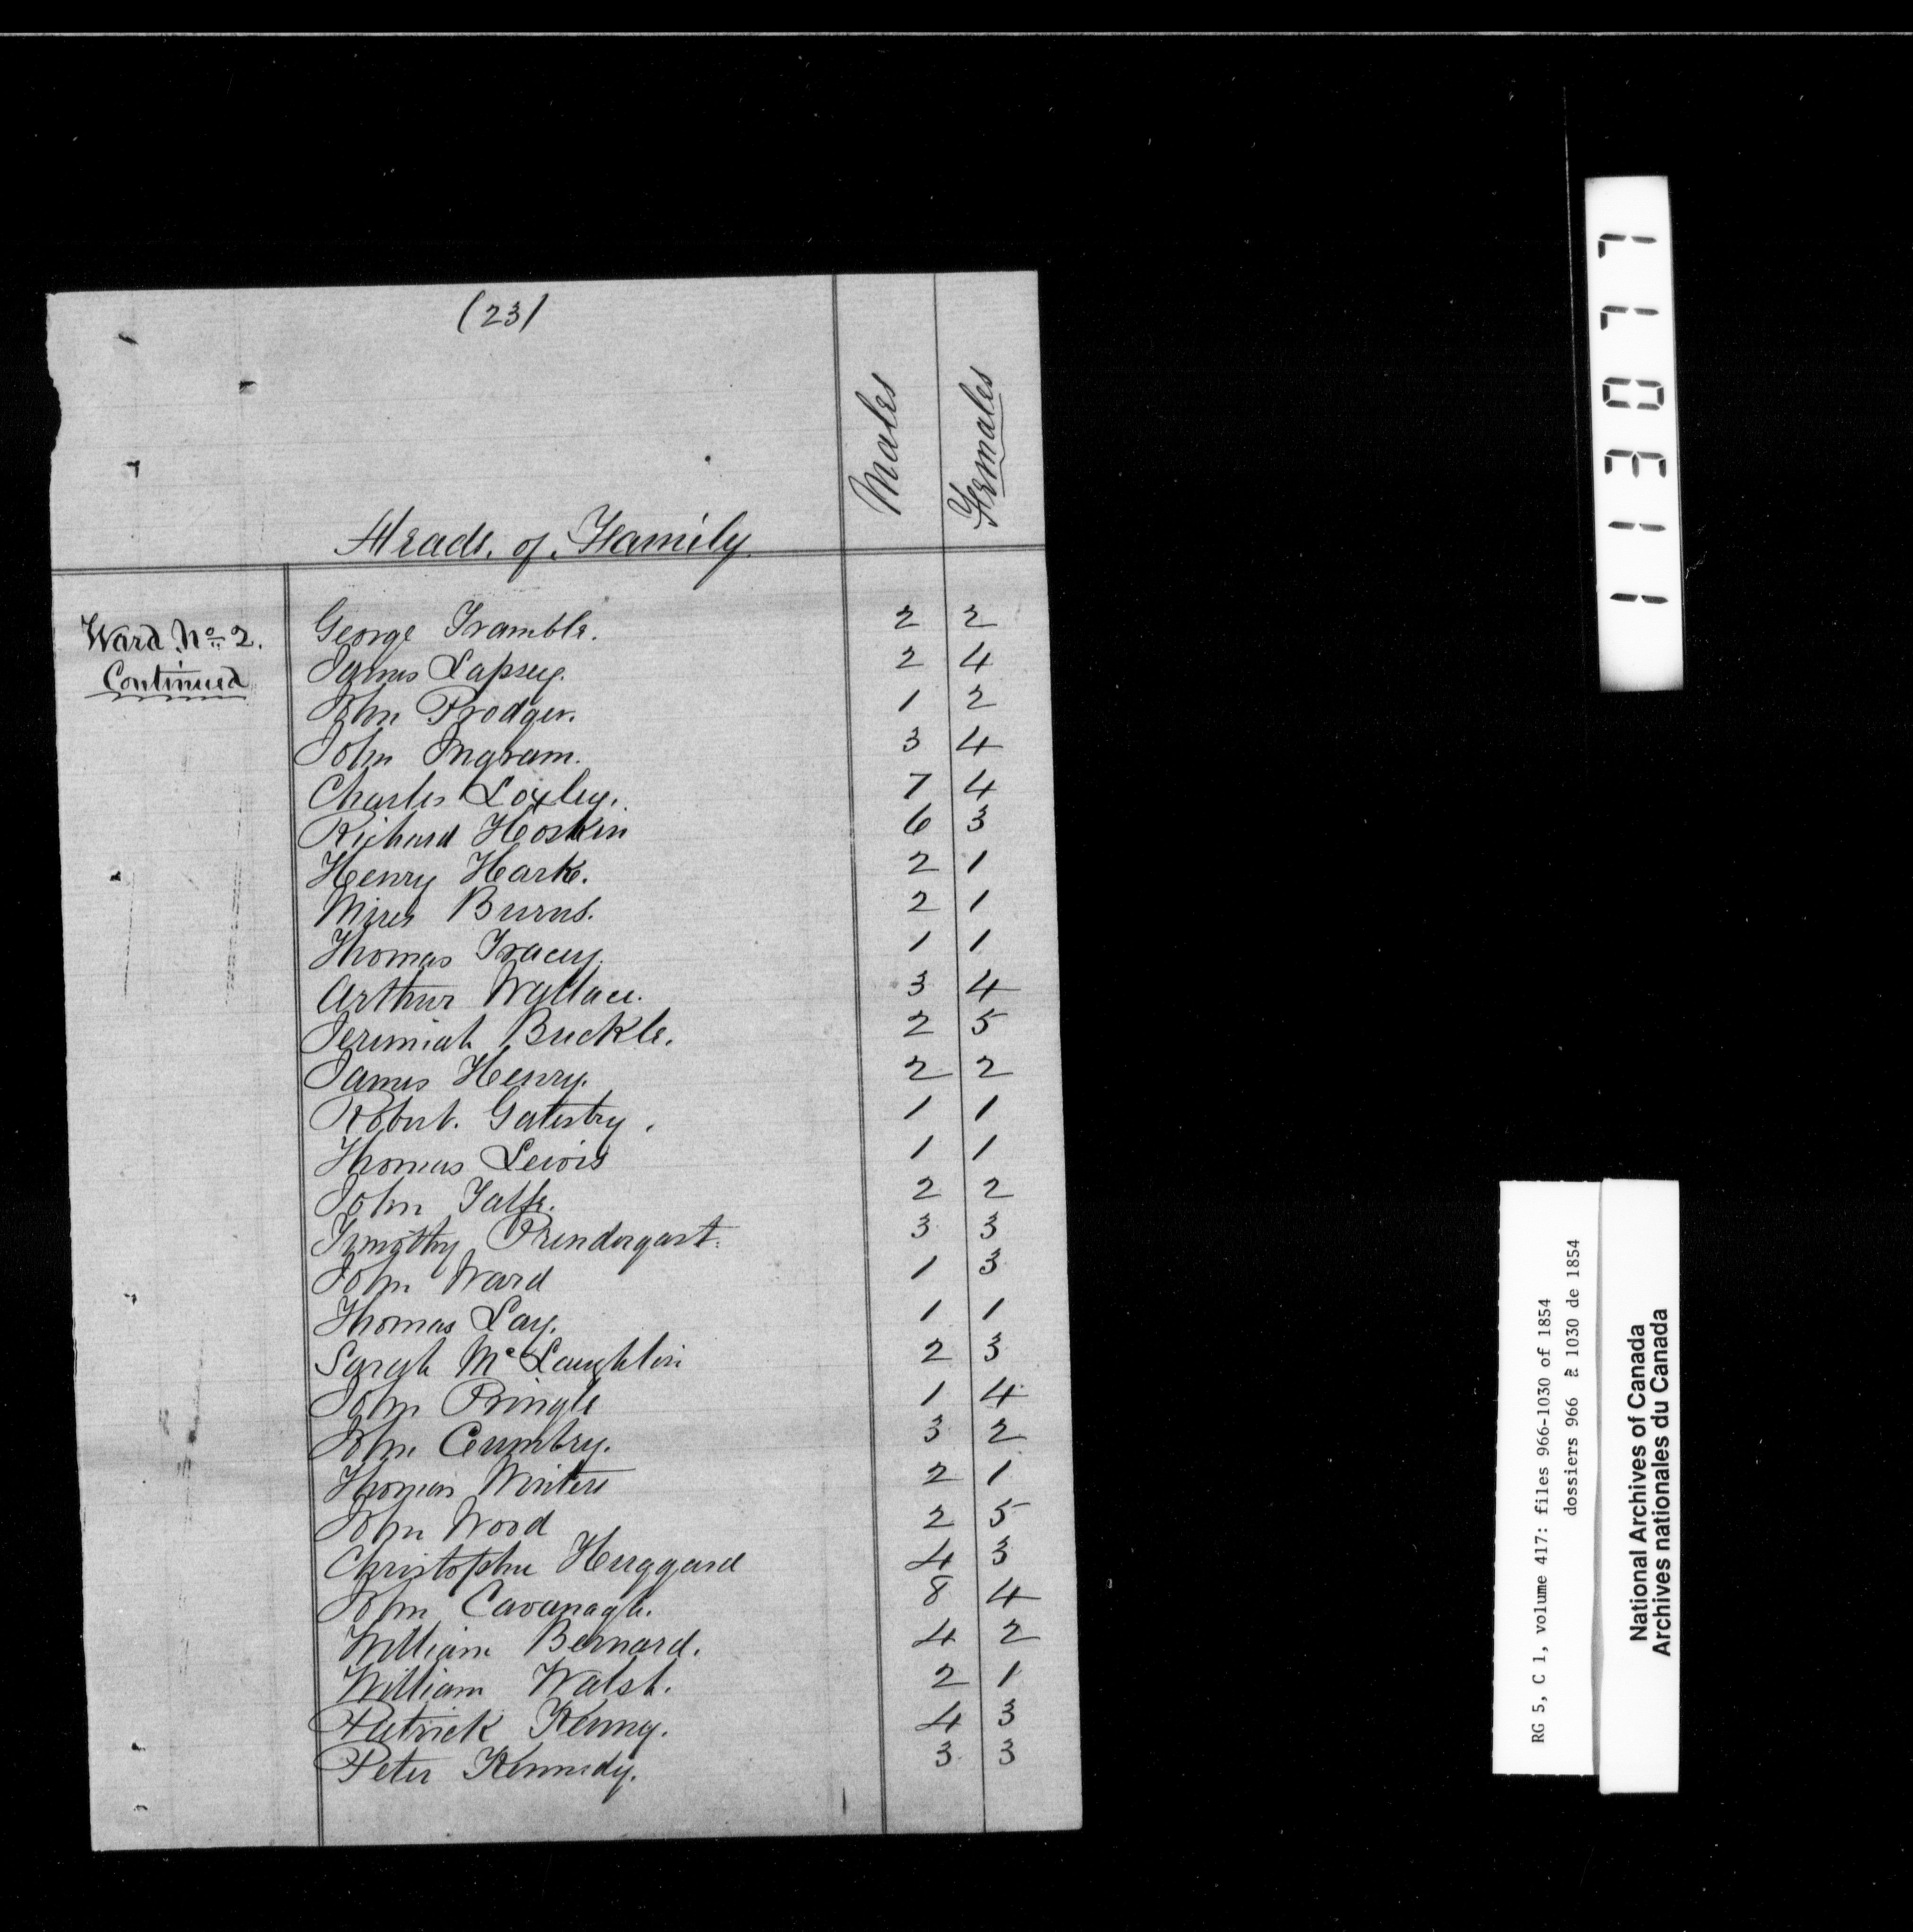 (23)
Heads. of. Family. Males Females
Ward No 2. George Tramble. 2 2
Continued James Lapsey. 2 4
John Prodger. 1 2
John Ingram. 3 4
Charles Loxley. 7 4
Richard Hoskin 6 3
Henry Hark. 2 1
Burns. 2 1
Thomas Tracey. 1 1
Arthur Wallace. 3 4
Jeremiah Buckle. 2 5
James Henry. 2 2
Robert. 1 1
Thomas Lewis 1 1
John 2 2
Timothy Prendergast. 3 3
John Ward 1 3
Thomas Lay. 1 1
Sarah McLaughlin 2 3
John Pringle 1 4
John Cumbry. 3 2
Thomas Winters 2 1
John Wood 2 5
Christopher Huggard 4 3
John Cavanagh. 8 4
William Bernard. 4 2
William Walsh. 2 1
Patrick Kenny. 4 3
Peter Kennedy. 3 3
113077
RG 5, C 1, volume 417: files 966-1030 of 1854
dossiers 966 à 1030 de 1854
National Archives of Canada
Archives nationales du Canada